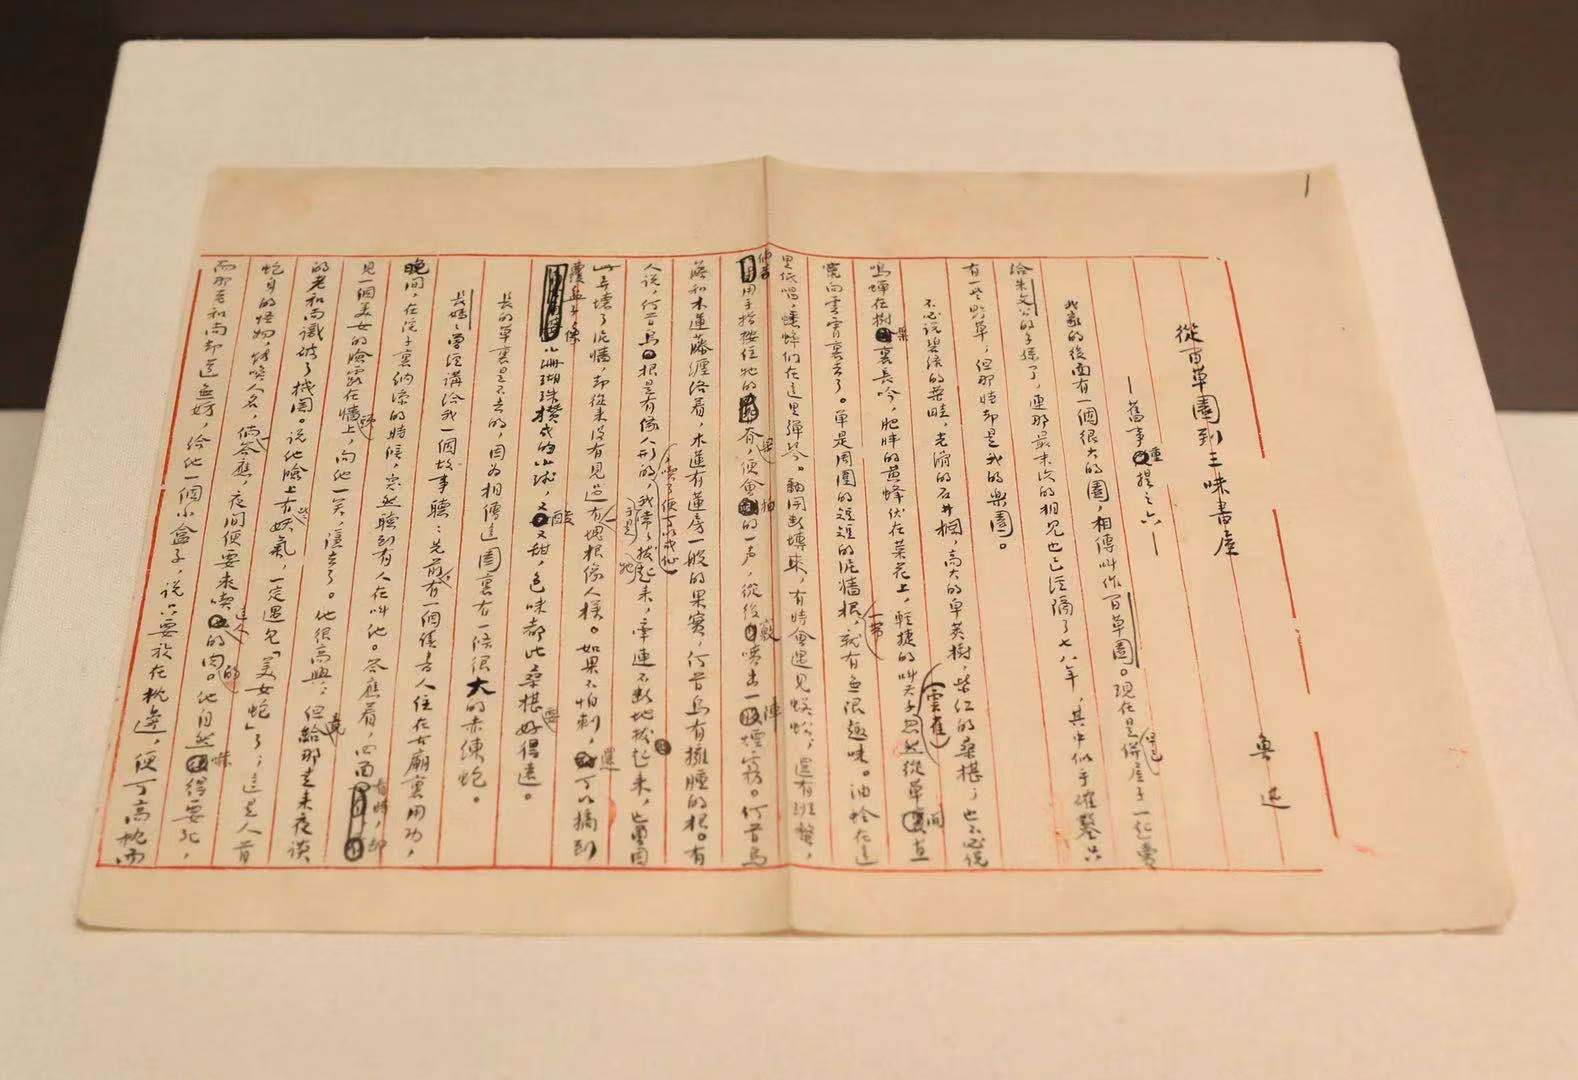 1
從百草園到三味書屋
——舊事重提之六——
魯迅
我家的後面有一個很大的園，相傳叫作百草園。現在是早已併屋子一起賣
給朱文公的子孫了，連那最末次的相見也已經隔了七八年，其中似乎確鑿只
有一些野草；但那時却是我的樂園。
不必説碧綠的菜畦，光滑的石井欄，高大的皁莢樹，紫红的桑椹；也不必説
鳴蟬在樹葉裏長吟，肥胖的黄蜂伏在菜花上，輕捷的叫天子（雲雀）忽然從草間直
竄向雲霄裏去了。單是周圍的短短的泥牆根一帶，就有無限趣味。油蛉在這
里低唱，蟋蟀們在這里彈琴。翻開斷塼來，有時會遇見蜈蚣；還有斑蝥，
倘若用手指按住牠的脊梁，便會拍的一声，從後竅噴出一陣煙霧。何首烏
藤和木蓮藤纏絡着，木蓮有蓮房一般的果實，何首烏有擁腫的根。有
人説，何首烏根是有像人形的，喫了便可以成仙，我于是常常拔牠起來，牽連不斷地拔起來，也曾因
此弄壞了泥牆，却從來没有見過有一塊根像人樣。如果不怕刺，還可以摘到
覆盆子，像小珊瑚珠攢成的小球，又酸又甜，色味都比桑椹要好得遠。
長的草裏是不去的，因为相傳這園裏有一條很大的赤練蛇。
長媽媽曾經講給我一個故事聽：先前，有一個讀書人住在古廟裏用功，
晚間，在院子裏納涼的時候，突然聽到有人在叫他。答應着，四面看時，却
見一個美女的臉露在牆頭上，向他一笑，隱去了。他很高興；但竟給那走來夜談
的老和尚識破了機關。説他臉上有些妖氣，一定遇見「美女蛇」了；這是人首
蛇身的怪物，能喚人名，倘一答應，夜間便要來喫這人的肉的。他自然嚇得要死，
而那老和尚却道無妨，給他一個小盒子，説只要放在枕邊，便可高枕而